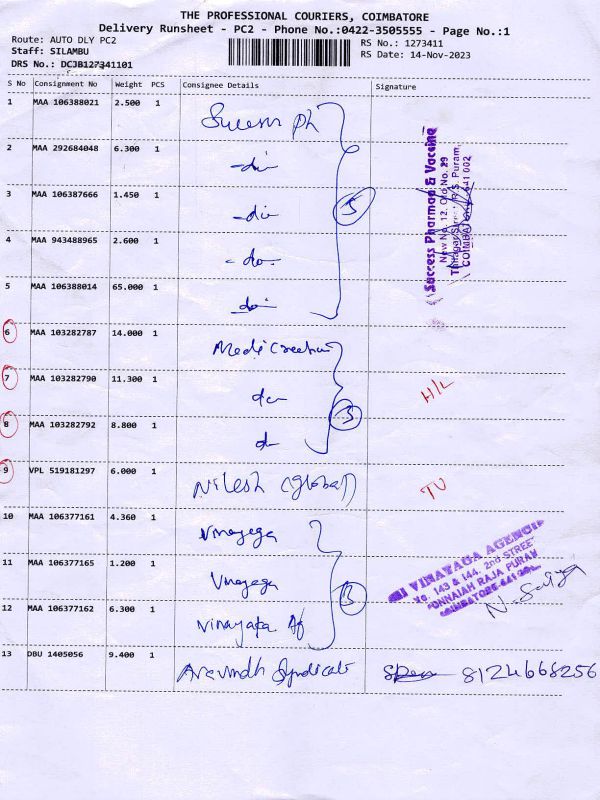 THE PROFESSIONAL COURIERS, COIMBATORE
Delivery Runsheet - PC2 - Phone No.:0422-3505555 - Page No.:1
Route: AUTO DLY PC2
Staff: SILAMBU
DRS No.: DCJB127341101
RS No.: 1273411
RS Date: 14-Nov-2023
S No Consignment No Weight PCS Consignee Details Signature
1 MAA 106388021 2.500 1 Success ph
2 MAA 292684048 6.300 1 -do-
3 MAA 106387666 1.450 1 -do-
5
4 MAA 943488965 2.600 1 -do-
5 MAA 106388014 65.000 1 do
Success Pharmaa & Vaccine
New No. 12, Old No. 29
COIMBATORE - 641 002
6 MAA 103282787 14.000 1
7 MAA 103282790 11.300 1 do H/L
3
8 MAA 103282792 8.800 1 do
9 VPL 519181297 6.000 1 Nilesh (global)
10 MAA 106377161 4.360 1 Vinayaga
11 MAA 106377165 1.200 1 Vinayaga
3
12 MAA 106377162 6.300 1 Vinayaga Ag
SRI VINAYAGA AGENCIES
No. 143 & 144, 2nd STREET
PONNAIAH RAJA PURAM
COIMBATORE-641 001.
13 DBU 1405056 9.400 1 Aravindh Syndicate 8124668256